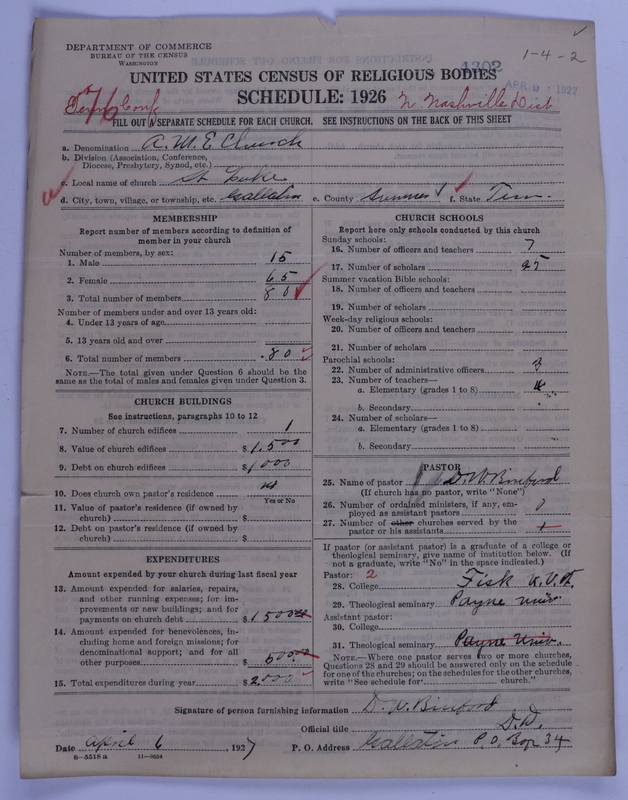 DEPARTMENT OF COMMERCE
BUREAU OF THE CENSUS
WASHINGTON
1-4-2
1302
APR 9 1927
UNITED STATES CENSUS OF RELIGIOUS BODIES
SCHEDULE: 1926
Tenn Conf
76
N. Nashville Dist
FILL OUT A SEPARATE SCHEDULE FOR EACH CHURCH. SEE INSTRUCTIONS ON THE BACK OF THIS SHEET
a. Denomination A. M. E. Church
b. Division (Association, Conference, Diocese, Presbytery, Synod, etc.)
c. Local name of church St Luke
d. City, town, village, or township, etc. Gallatin e. County Sumner f. State Ten.
MEMBERSHIP
Report number of members according to definition of member in your church
Number of members, by sex:
1. Male 15
2. Female 65
3. Total number of members 80
Number of members under and over 13 years old:
4. Under 13 years of age
5. 13 years old and over
6. Total number of members 80
NOTE.—The total given under Question 6 should be the same as the total of males and females given under Question 3.
CHURCH BUILDINGS
See instructions, paragraphs 10 to 12
7. Number of church edifices 1
8. Value of church edifices $1,500
9. Debt on church edifices $1000
10. Does church own pastor's residence
Yes or No
11. Value of pastor's residence (if owned by church) $
12. Debt on pastor's residence (if owned by church) $
EXPENDITURES
Amount expended by your church during last fiscal year
13. Amount expended for salaries, repairs, and other running expenses; for improvements or new buildings; and for payments on church debt $1500
14. Amount expended for benevolences, including home and foreign missions; for denominational support; and for all other purposes $500
15. Total expenditures during year $2000
CHURCH SCHOOLS
Report here only schools conducted by this church
Sunday schools:
16. Number of officers and teachers 7
17. Number of scholars
Summer vacation Bible schools:
18. Number of officers and teachers
19. Number of scholars
Week-day religious schools:
20. Number of officers and teachers
21. Number of scholars
Parochial schools:
22. Number of administrative officers 3
23. Number of teachers—
a. Elementary (grades 1 to 8)
b. Secondary
24. Number of scholars—
a. Elementary (grades 1 to 8)
b. Secondary
PASTOR
25. Name of pastor D. W. Binford
(If church has no pastor, write "None")
26. Number of ordained ministers, if any, employed as assistant pastors 0
27. Number of other churches served by the pastor or his assistants
If pastor (or assistant pastor) is a graduate of a college or theological seminary, give name of institution below. (If not a graduate, write "No" in the space indicated.)
Pastor: 2
28. College Fisk
29. Theological seminary Payne Univ
Assistant pastor:
30. College
31. Theological seminary Payne Univ.
NOTE.—Where one pastor serves two or more churches, Questions 28 and 29 should be answered only on the schedule for one of the churches; on the schedules for the other churches, write "See schedule for church."
Signature of person furnishing information D. W. Binford
Official title D. D.
Date April 6, 1927 P. O. Address Gallatin P. O. Box 34
8—5518a 11—9034